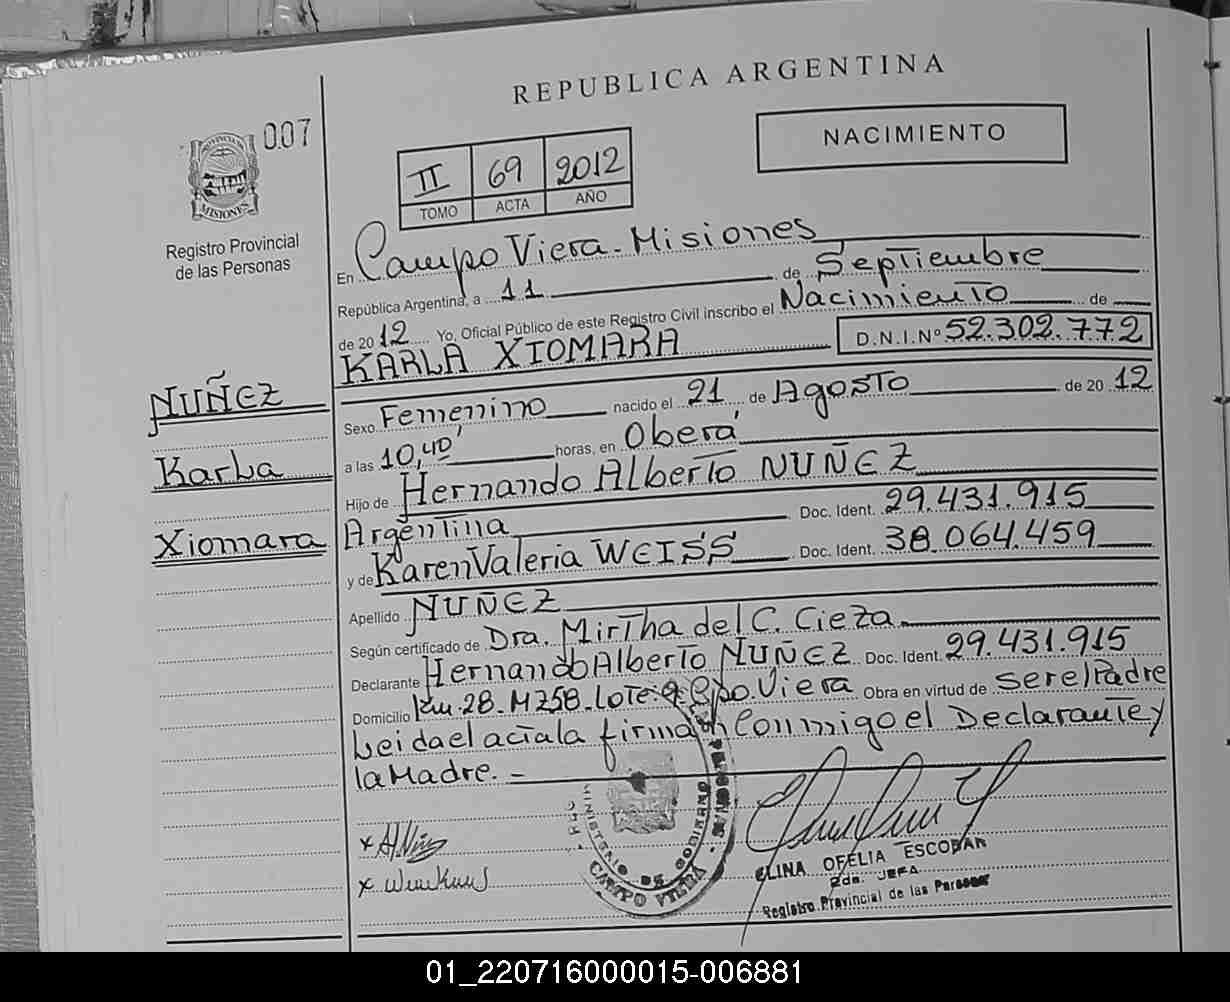 REPUBLICA ARGENTINA
007
NACIMIENTO
II 69 2012
TOMO ACTA AÑO
PROVINCIA
MISIONES
Registro Provincial
de las Personas
En Campo Viera - Misiones
República Argentina, a 11 de Septiembre
de 2012 Yo, Oficial Público de este Registro Civil inscribo el Nacimiento de
KARLA XIOMARA D.N.I.Nº 52.302.772
NUÑEZ
Karla
Xiomara
Sexo Femenino nacido el 21 de Agosto de 2012
a las 10,40' horas, en Oberá
Hijo de Hernando Alberto NUÑEZ
Argentina Doc. Ident. 29.431.915
y de Karen Valeria WEISS Doc. Ident. 38.064.459
Apellido NUÑEZ
Según certificado de Dra. Mirtha del C. Cieza
Declarante Hernando Alberto NUÑEZ Doc. Ident. 29.431.915
Domicilio Km. 28. MZ58. Lote: 9 Cpo. Viera Obra en virtud de ser el Padre
Leida el acta la firman Conmigo el Declarante y
la Madre. -
MINISTERIO DE GOBIERNO
CAMPO VIERA
ELINA OFELIA ESCOBAR
2da. JEFA
Registro Provincial de las Personas
01_220716000015-006881